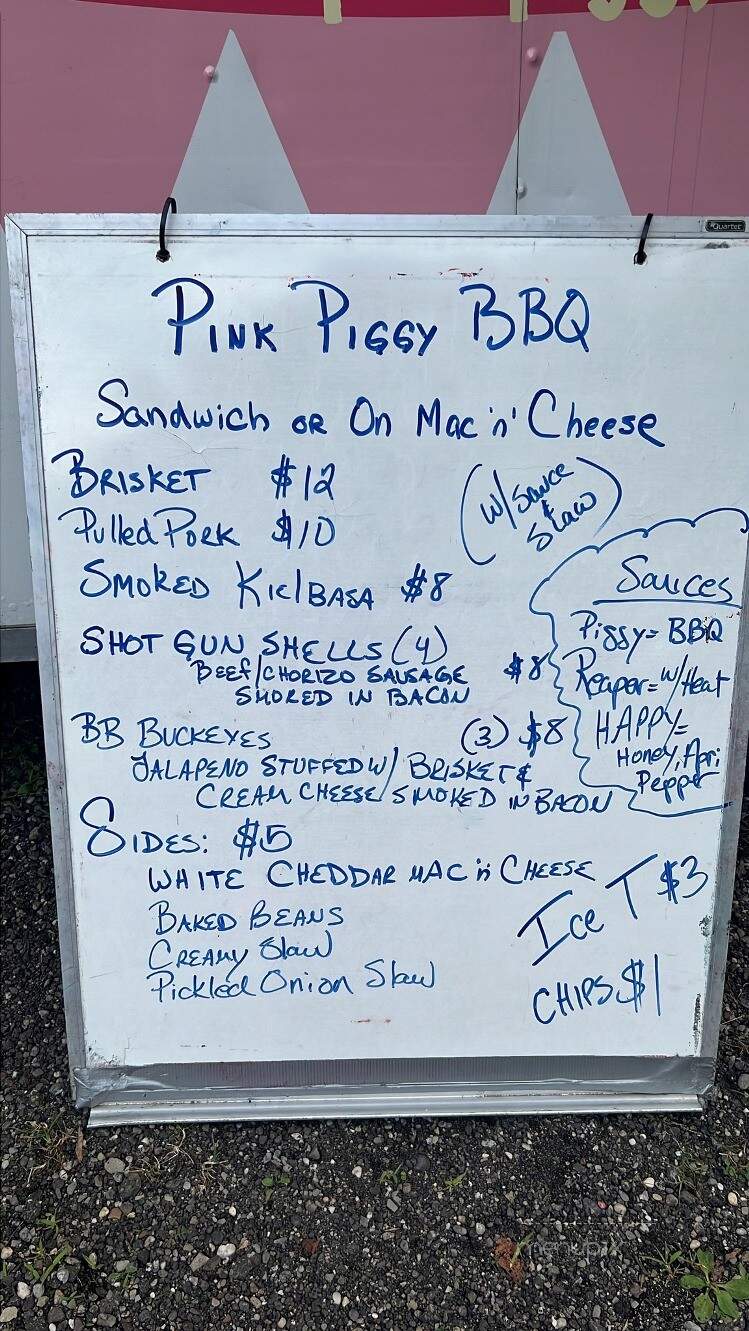 Quartet
PINK PIGGY BBQ
Sandwich OR On Mac 'n' Cheese
BRISKET $12
(w/ Sauce & Slaw)
Pulled PORK $10
SMOKED KielBASA $8
SHOT GUN SHELLS (4)
BEEF/CHORIZO SAUSAGE $8
SMOKED IN BACON
BB BUCKEYES (3) $8
JALAPENO STUFFED W/ BRISKET &
CREAM CHEESE/SMOKED IN BACON
Sauces
Piggy = BBQ
Reaper = w/ Heat
HAPPY =
Honey, Apri
Pepper
SIDES: $5
WHITE CHEDDAR MAC 'n' CHEESE
BAKED BEANS
CREAMY Slaw
Pickled Onion Slaw
Ice T $3
CHIPS $1
menupix